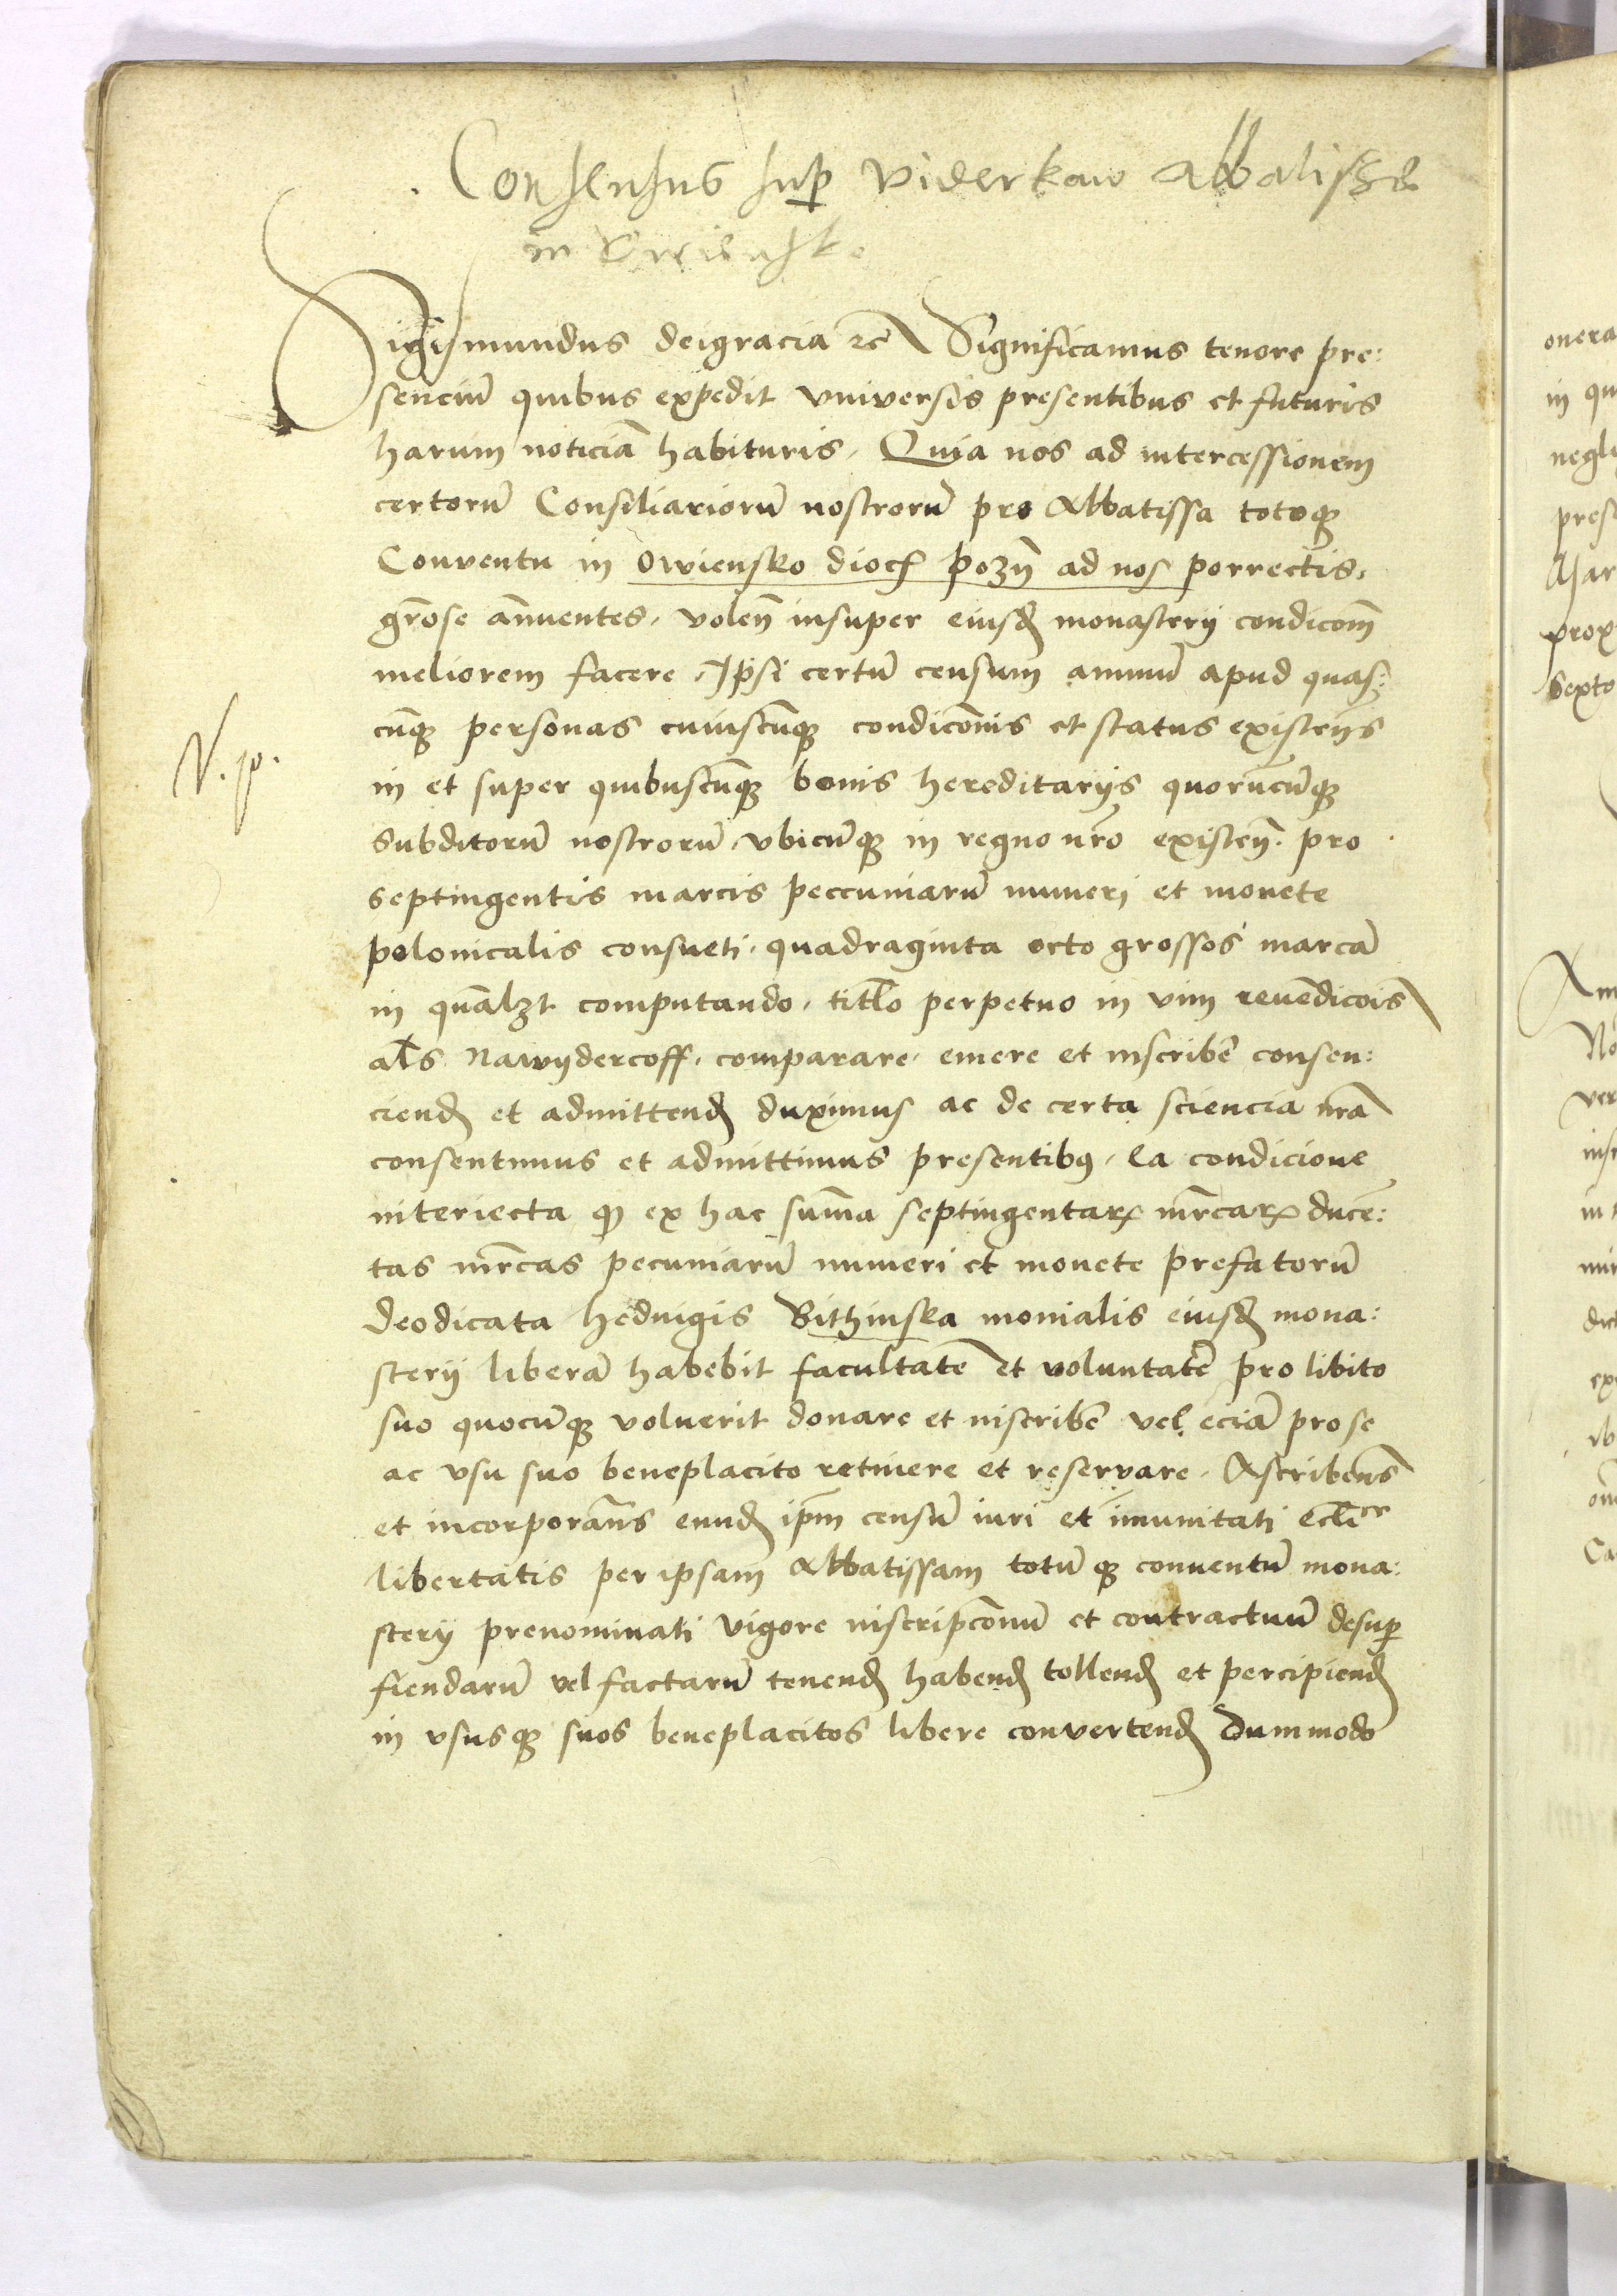 Consensus sup viderkaw Abbatisse
in Owiensko
Sigismundus deigracia etc Significamus tenore pre:
senciū quibus expedit vniversis presentibus et futuris
harum noticiā habituris. Quia nos ad intercessionem
certorū Consiliariorū nostrorū pro Abbatissa totoq̄
Conventu in Owiensko dioc̄ pozn̄ ad nos porrectis,
grōse annuentes, volen̄ insuper eiusd̄ monasterij condicōm
meliorem facere, Ipsi certū censum annuū apud quas:
cūq̄ personas cuiuscūq̄ condicōnis et status existēn̄s
in et super quibuscūq̄ bonis hereditarijs quorūcūq̄
subditorū nostrorū, vbicūq̄ in regno nr̄o existen̄. pro
septingentis marcis peccuniarū numeri et monete
polonicalis consueti, quadraginta octo grossos marcā
in quālʒt computando, titl̄o perpetuo in vim reuēdicōis
al̄s Nawydercoff, comparare, emere et inscribē consen:
ciend̄ et admittend̄ duximus ac de certa sciencia nr̄a
consentimus et admittimus presentibꝰ, ea condicione
interiecta qd̄ ex hac sum̄a septingentarꝝ mr̄carꝝ ducē:
tas mr̄cas pecuniarū numeri et monete prefatorū
deodicata hedvigis Bithinska monialis eiusd̄ mona:
sterij liberā habebit facultatē et voluntatē pro libito
suo quocūq̄ voluerit donare et inscribē vel eciā pro se
ac vsu suo beneplacito retinere et reservare. Ascribēns
et incorporān̄s eund̄ ip̄m censū iuri et imunitati eccl̄ice
libertatis per ipsam Abbatissam totū q̄ conventū mona:
sterij prenominati vigore inscripcōnū et contractuū desup
fiendarū vel factarū tenend̄ habend̄ tollend̄ et percipiend̄
in vsusq̄ suos beneplacitos libere convertend̄ Dummodo